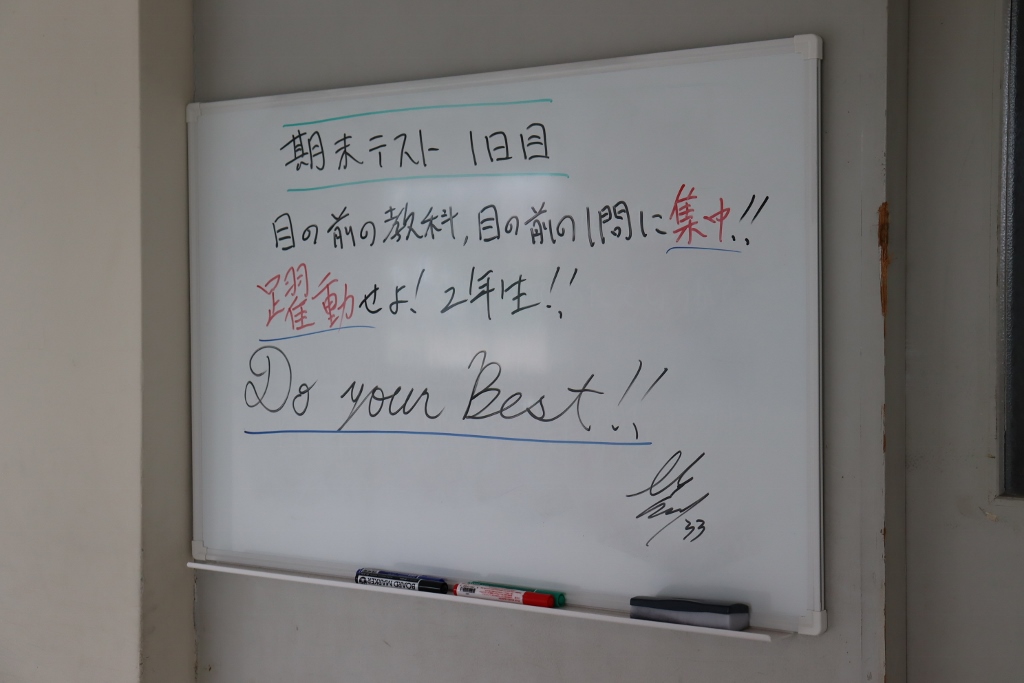 期末テスト 1日目
目の前の教科,目の前の1問に集中!!
躍動せよ! 2年生!!
Do your Best!!
33
BOARD MARKER